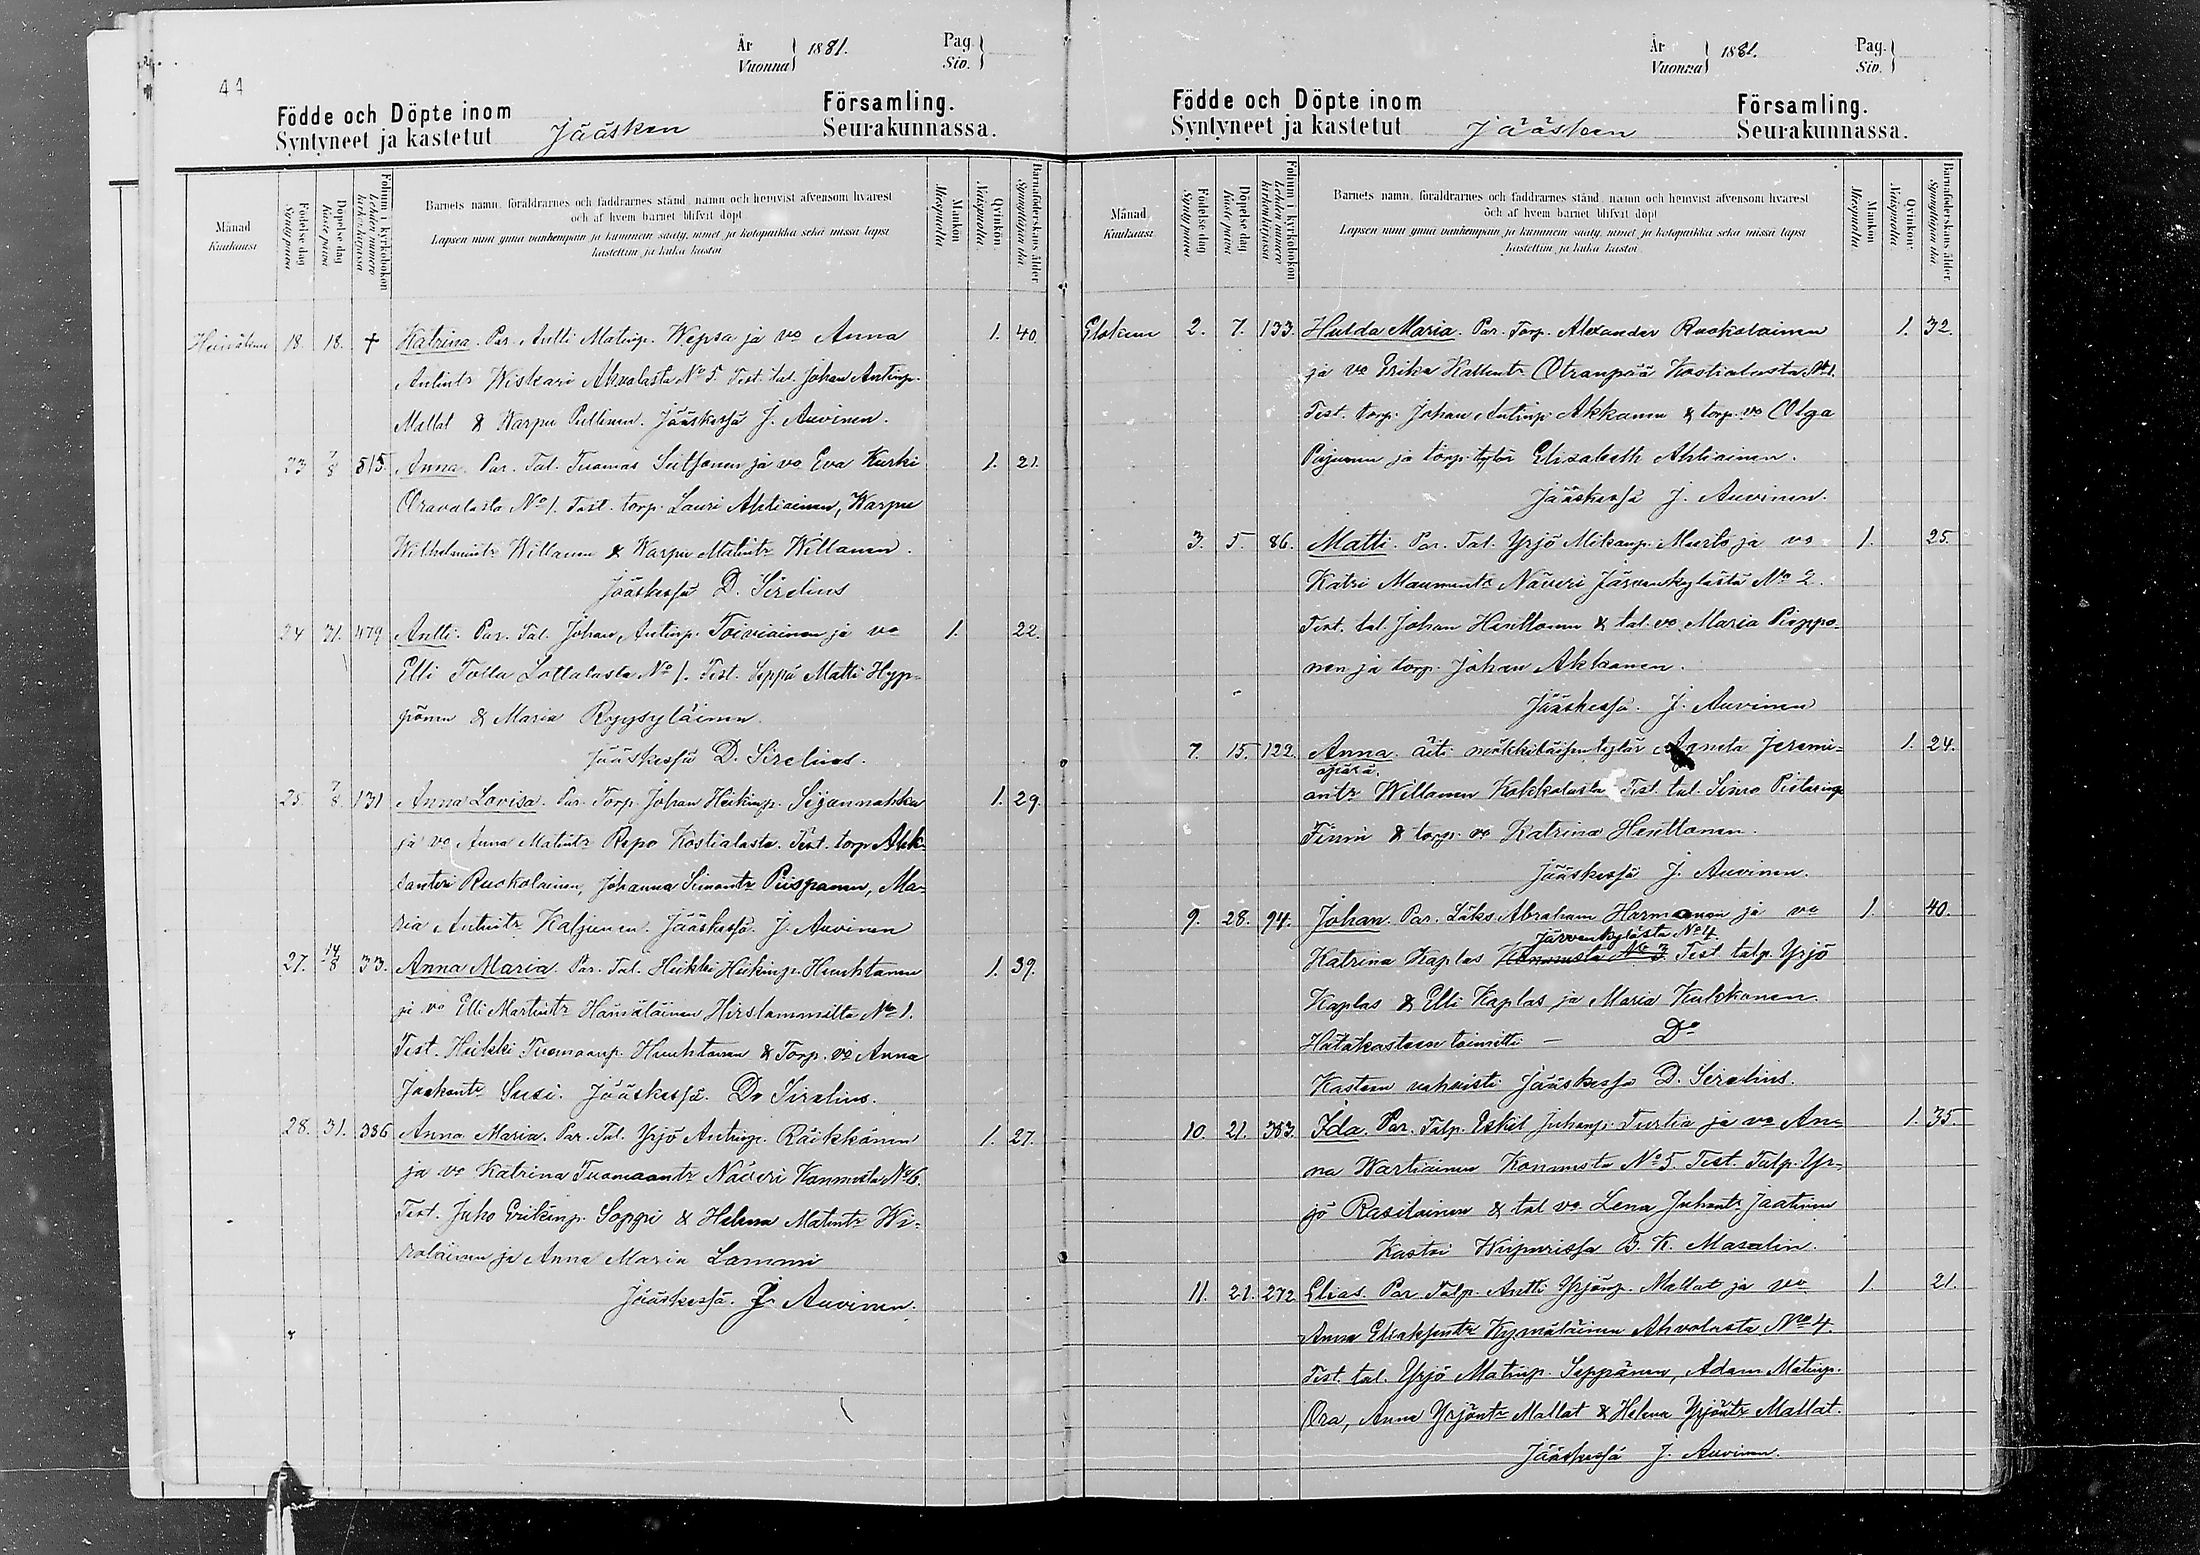 44
År
Vuonna } 1881.
Pag.
Siv. }
Födde och Döpte inom
Syntyneet ja kastetut
Jääsken
Församling.
Seurakunnassa.
Månad
Kuukausi
Födelse dag
Syntypäivä
Döpelse dag
Kaste päivä
Folium i kyrkoboken
Lehden numero kirkonkirjassa
Barnets namn, föräldrarnes och faddrarnes stånd, namn och hemvist äfvensom hvarest
och af hvem barnet blifvit döpt
Lapsen nimi ynnä vanhempain ja kummein sääty, nimet ja kotopaikka sekä missä lapsi
kastettiin ja kuka kastoi
Mankön
Miespuolia
Qvinkön
Naispuolia
Barnaföderskans ålder
Synnyttäjän ikä
Heinäkuu 18. 18. † Katrina. Par. Antti Matinp. Wepsa ja vo Anna 1. 40.
Antintr Wiskari Ahvolasta No 5. Test. tal. Johan Antinp.
Mallat & Warpu Pullinen. Jääskessä J. Auvinen.
23 7/8 515. Anna. Par. Tal. Tuomas Suitjonen ja vo Eva Kurki 1. 21.
Oravalasta No 1. Test. torp. Lauri Ahtiainen, Warpu
Wilhelmintr Willanen & Warpu Matintr Willanen.
Jääskessä D. Sirelius
24 31. 479 Antti. Par. Tal. Johan Antinp. Toiviainen ja vo 1. 22.
Elli Tolla Lottalasta No 1. Test. Seppä Matti Hyp-
pönen & Maria Ryysyläinen.
Jääskessä D. Sirelius.
25 7/8 131 Anna Lovisa. Par. Torp. Johan Heikinp. Sijannahka 1. 29.
ja vo Anna Matintr Repo Kostialasta. Test. torp. Alek-
santeri Ruokolainen, Johanna Simontr Piispanen, Ma-
ria Antintr Kaljunen. Jääskessä. J. Auvinen
27. 14/8 33. Anna Maria. Par. Tal. Heikki Heikinp. Huuhtanen 1. 39.
ja vo Elli Martintr Hämäläinen Hirslammilta No 1.
Test. Heikki Tuomaanp. Huuhtanen & Torp. vo Anna
Jaakontr Susi. Jääskessä. D. Sirelius.
28. 31. 386 Anna Maria. Par. Tal. Yrjö Antinp. Räikkönen 1. 27.
ja vo Katrina Tuomaantr Näveri Konnusta No 6.
Test. Juho Erikinp. Soppi & Helena Matintr Wi-
rolainen ja Anna Maria Lammi
Jääskessä. J. Auvinen.
År
Vuonna } 1881.
Pag.
Siv. }
Födde och Döpte inom
Syntyneet ja kastetut
Jääsken
Församling.
Seurakunnassa.
Månad
Kuukausi
Födelse dag
Syntypäivä
Döpelse dag
Kaste päivä
Folium i kyrkoboken
Lehden numero kirkonkirjassa
Barnets namn, föräldrarnes och faddrarnes stånd, namn och hemvist äfvensom hvarest
och af hvem barnet blifvit döpt
Lapsen nimi ynnä vanhempain ja kummein sääty, nimet ja kotopaikka sekä missä lapsi
kastettiin ja kuka kastoi
Mankön
Miespuolia
Qvinkön
Naispuolia
Barnaföderskans ålder
Synnyttäjän ikä
Elokuu 2. 7. 133. Hulda Maria. Par. Torp. Alexander Ruokolainen 1. 32.
ja vo Erika Kallentr Otranpää Kostialasta No 1.
Test. torp. Johan Antinp. Akkanen & torp. vo Olga
Pajunen ja torp. tytär Elisabeth Ahtiainen.
Jääskessä J. Auvinen.
3. 5. 86. Matti. Par. Tal. Yrjö Mikonp. Musto ja vo 1. 25.
Katri Maununtr Näveri Järvenkylästä No 2.
Test. tal. Johan Henttonen & tal. vo Maria Pieppo-
nen ja torp. Johan Akkanen.
Jääskessä. J. Auvinen
7. 15. 122. Anna äpärä. äiti mökkiläisen tytär Agneta Jeremi- 1. 24.
antr Willanen Kokkolasta Test. tal. Simo Pietarinp
Finni & torp. vo Katrina Henttonen.
Jääskessä J. Auvinen.
9. 28. 94. Johan. Par. Läks. Abraham Harmonen ja vo 1. 40.
Järvenkylästä No 4.
Katrina Kaplas Konnusta No 3. Test. talp. Yrjö
Kaplas & Elli Kaplas ja Maria Kukkonen.
Hätäkasteen toimitti — Do
Kasteen vahvisti Jääskessä D. Sirelius.
10. 21. 383. Ida. Par. Talp. Eskil Juhanp. Turtia ja vo An- 1. 35.
na Wartiainen Konnusta No 5. Test. Talp. Yr-
jö Rasilainen & tal vo. Lena Juhontr Jaatinen
Kastoi Wiipurissa B. K. Masalin.
11. 21. 272 Elias. Par. Talp. Antti Yrjönp. Mallat ja vo 1. 21.
Anna Eliaksentr Kymäläinen Ahvolasta No 4.
Test. tal. Yrjö Matinp. Seppänen, Adam Matinp.
Ora, Anna Yrjöntr Mallat & Helena Yrjöntr Mallat.
Jääskessä J. Auvinen.